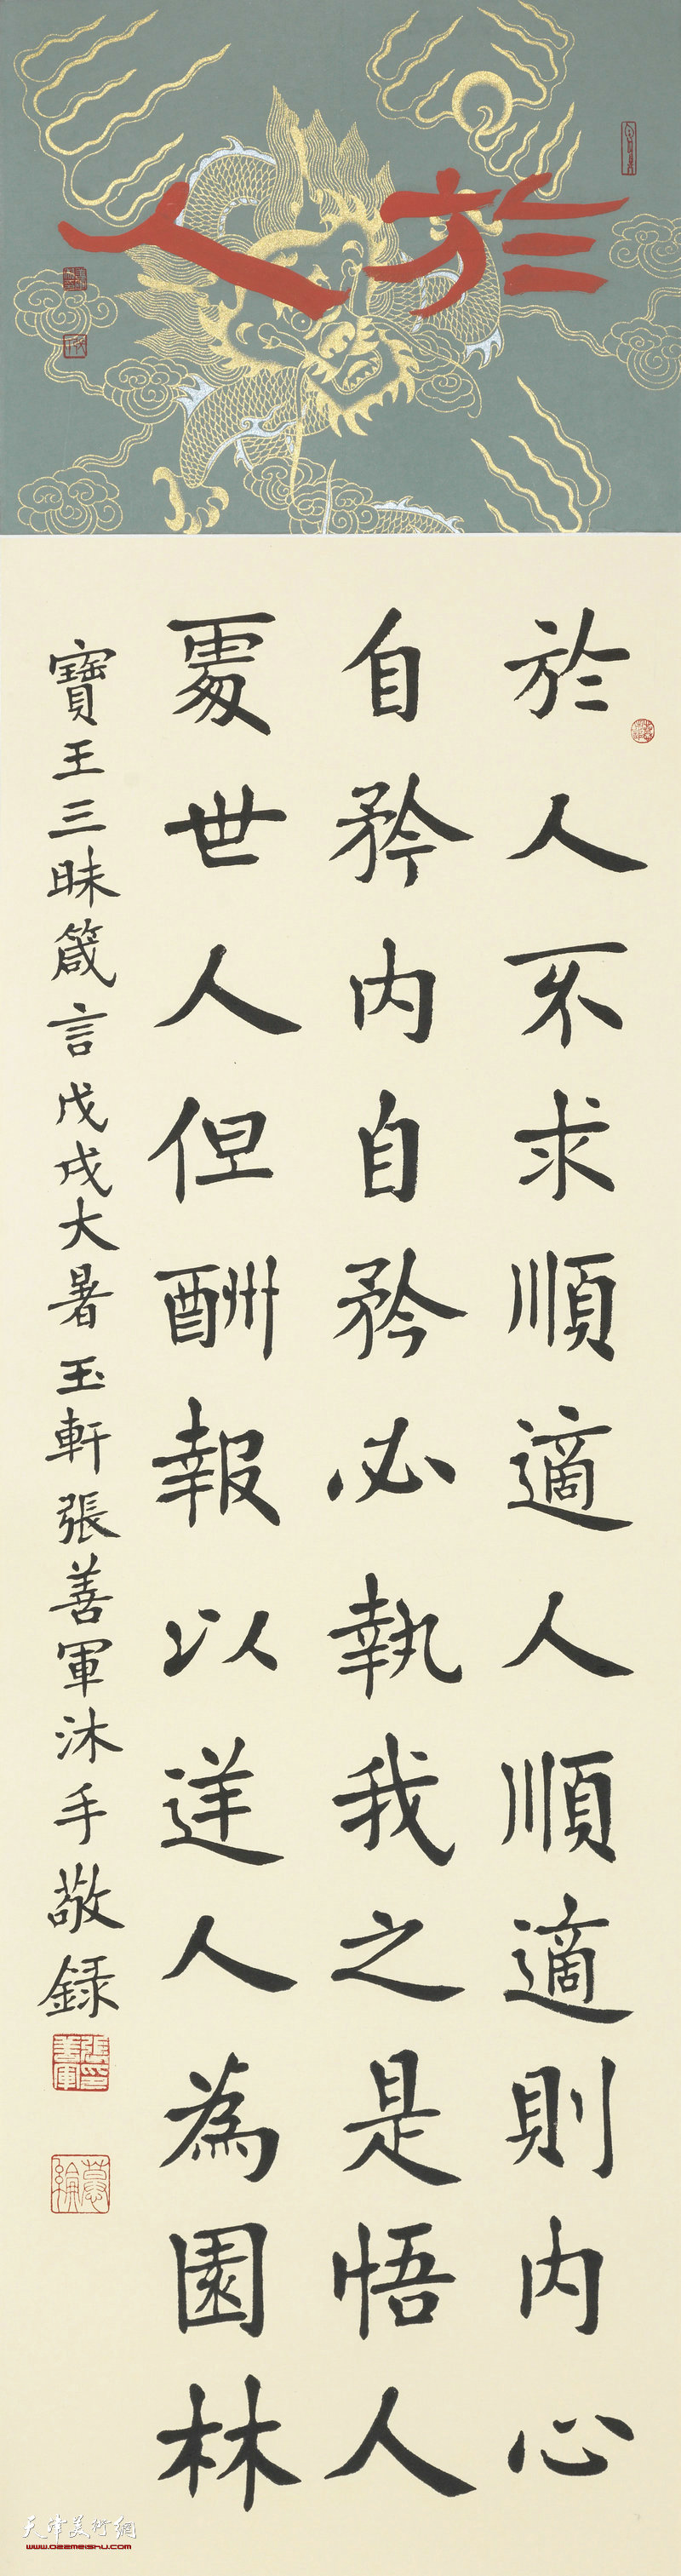 於人
於人不求順適人順適則内心
自矜内自矜必執我之是悟人
處世人但酬報以逆人為園林
寶王三昧箴言戊戌大暑玉軒張善軍沐手敬録
張善軍印
天津美術網
www.022meishu.com